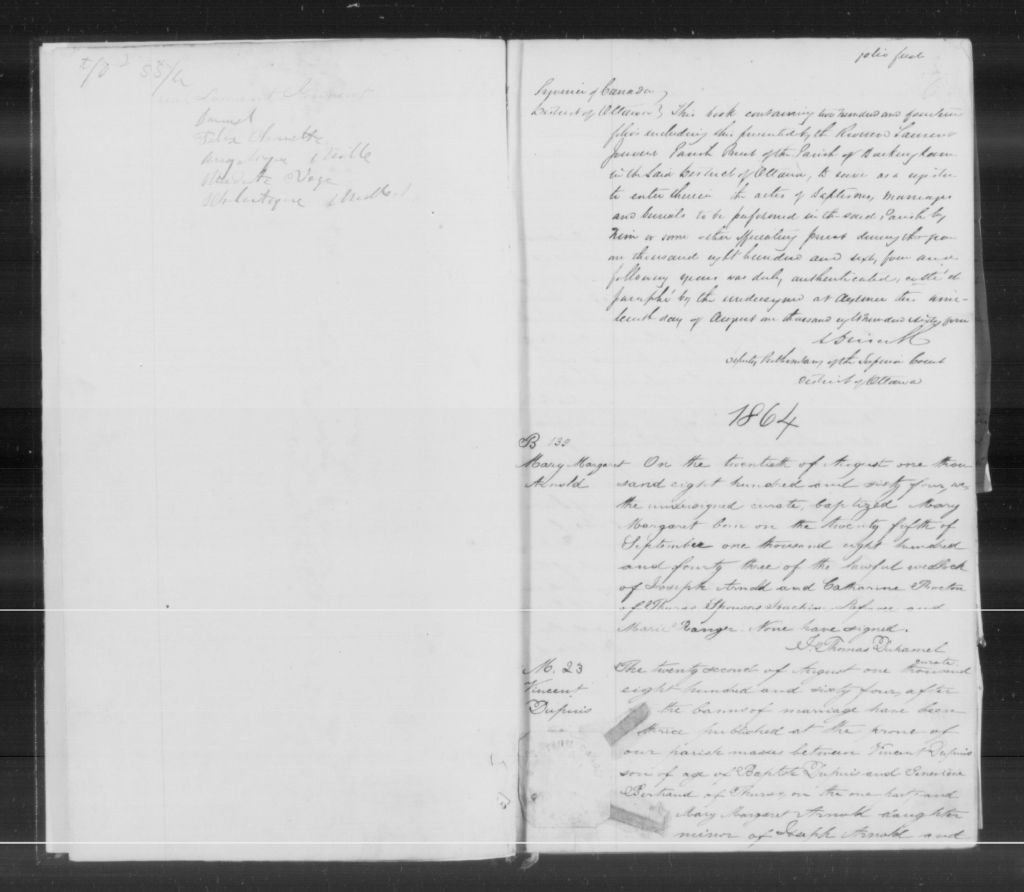 folio first
Province of Canada
District of Ottawa } This book containing two hundred and fourteen
folios including this presented by the Reverend Laurent
Jouvent Parish Priest of the Parish of Buckingham
in the said District of Ottawa, to serve as a register
to enter therein the actes of Baptisms, marriages
and burials to be performed in the said Parish by
him or some other officiating priest during the year
one thousand eight hundred and sixty four and
following years was duly authenticated,
paraphé by the undersigned at Aylmer this nine-
teenth day of August one thousand eight hundred sixty four
Deputy Prothonotary of the Superior Court
District of Ottawa
1864
B 139
Mary Margaret
Arnold
On the twentieth of August one thou
sand eight hundred and sixty four, we,
the undersigned curate, baptized Mary
Margaret born on the twenty fifth of
September one thousand eight hundred
and fourty three of the lawful wedlock
of Joseph Arnold and Catharine
of Thurso Sponsors Joachim and
Marie Ranger. None have signed.
J. Thomas Duhamel
curate
M. 23
Vincent
Dupuis
The twenty second of August one thousand
eight hundred and sixty four, after
the banns of marriage have been
thrice published at the prone of
our parish masses between Vincent Dupuis
son of age of Baptiste Dupuis and Genevieve
Bertrand of Thurso, on the one part, and
Mary Margaret Arnold daughter
minor of Joseph Arnold and